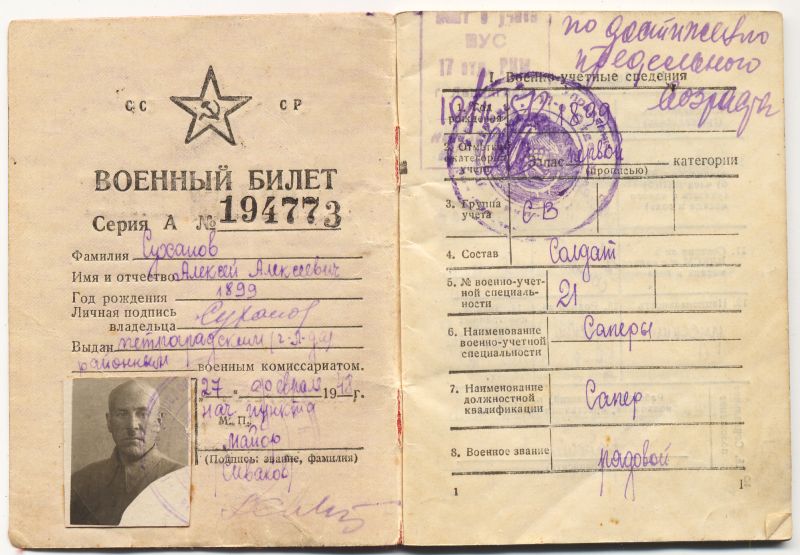 СС СР
ВОЕННЫЙ БИЛЕТ
Серия А № 194773
Фамилия Суханов
Имя и отчество Алексей Алексеевич
Год рождения 1899
Личная подпись
владельца Суханов
Выдан петроградским г. Л-да
районным военным комиссариатом.
27 февраля 1948 г.
нач пункта
М. П.
майор
(Подпись: звание, фамилия)
по достижению
предельного
возраста
ВУС
17 отд. РКМ
I. Военно-учетные сведения
1. Год
рождения 1899
2. Отметка
категории
учета Запас первой категории
(прописью)
3. Группа
учета С-В
4. Состав Солдат
5. № военно-учет-
ной специаль-
ности 21
6. Наименование
военно-учетной
специальности Саперы
7. Наименование
должностной
квалификации Сапер
8. Военное звание рядовой
1